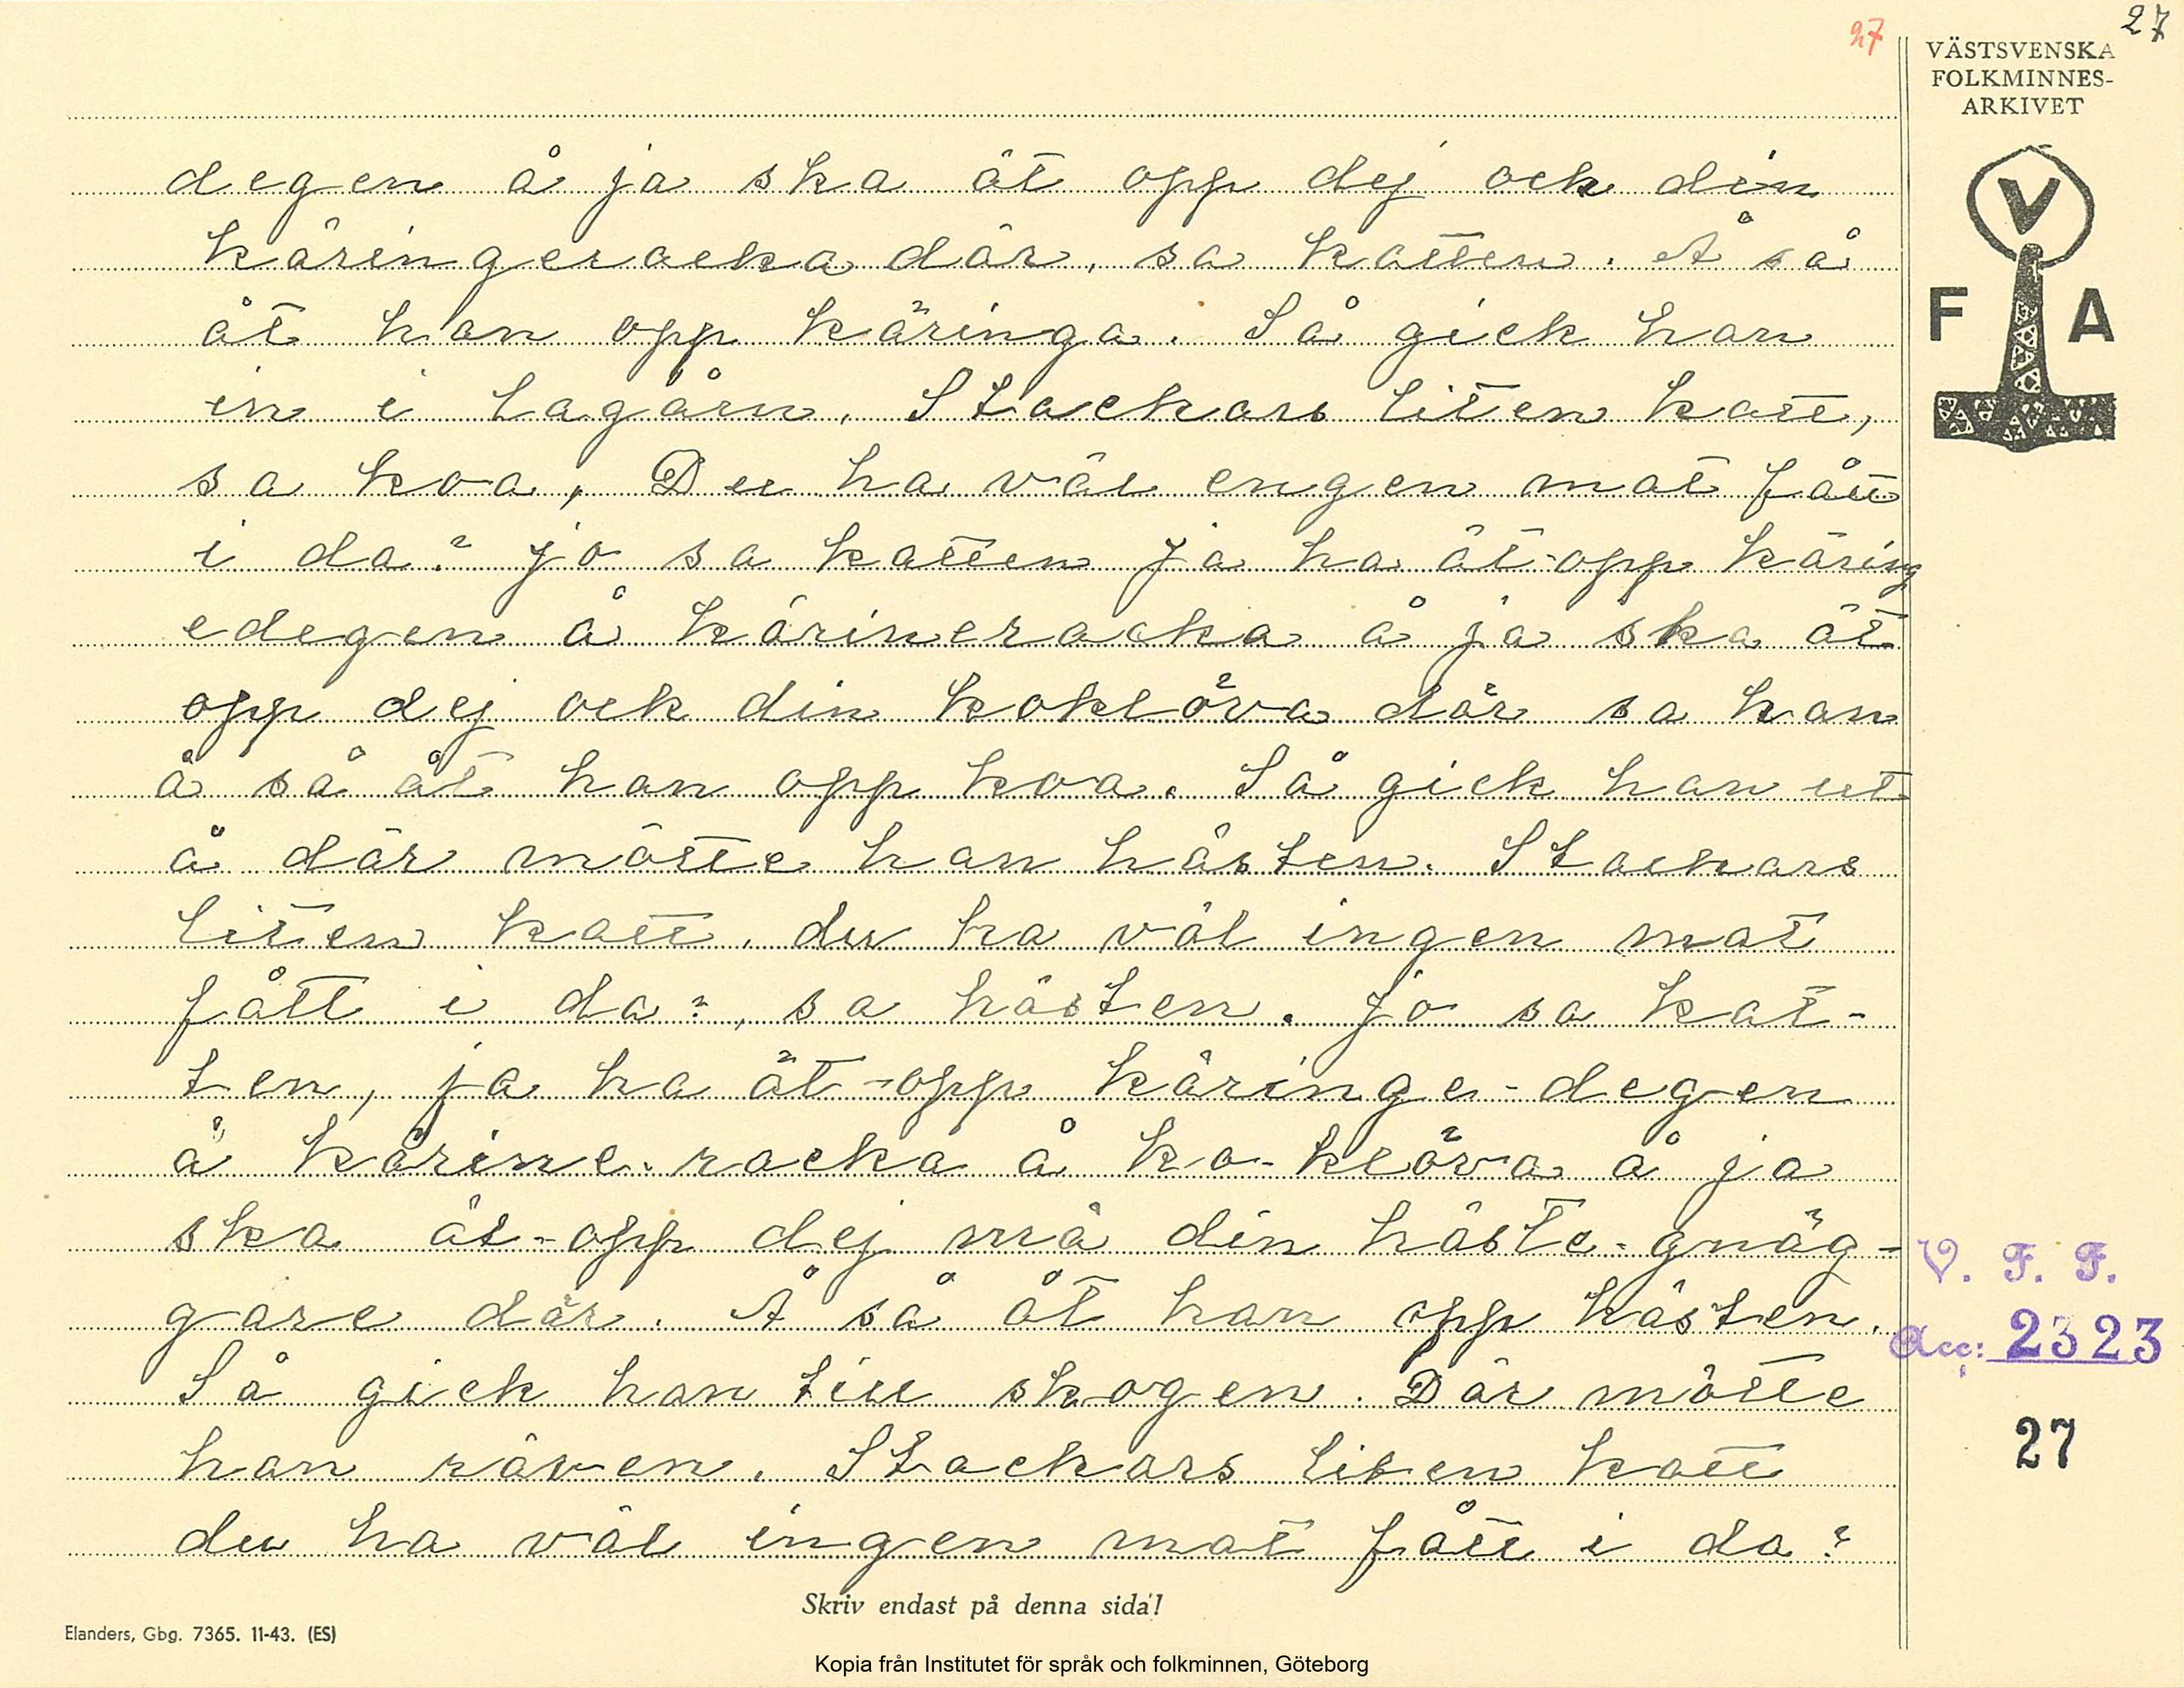 27
27
VÄSTSVENSKA
FOLKMINNES-
ARKIVET
V
F A
degen å ja ska ät opp dej ock din
käringeracka där, sa katten. Å så
åt han opp käringa. Så gick han
in i lagårn. Stackars liten katt,
sa koa, Du ha väl engen mat fått
i da? jo sa katten ja ha ät-opp käring
edegen å kärineracka å ja ska ät
opp dej ock din koklöva där sa han
å så åt han opp koa. Så gick han ut
å där mötte han hästen. Stackars
liten katt. du ha väl ingen mat
fått i da?, sa hästen. Jo sa kat-
ten, ja ha ät-opp käringe-degen
å kärine-racka å ko-klöva å ja
ska ät-opp dej mä din häste-gnäg-
gare där. Å så åt han opp hästen.
Så gick han till skogen. Där mötte
han räven. Stackars liten katt
du ha väl ingen mat fått i da?
V. F. F.
Acc: 2323
27
Skriv endast på denna sida!
Elanders, Gbg. 7365. 11-43. (ES)
Kopia från Institutet för språk och folkminnen, Göteborg